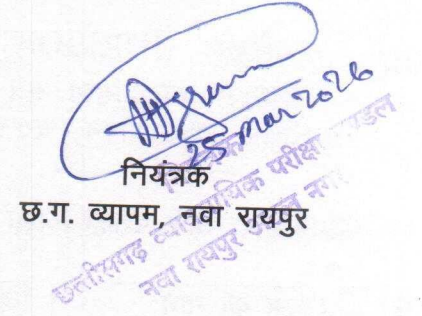 25 Mar 2026
नियंत्रक
छ.ग. व्यापम, नवा रायपुर
छत्तीसगढ़ व्यावसायिक परीक्षा मण्डल
नवा रायपुर अटल नगर